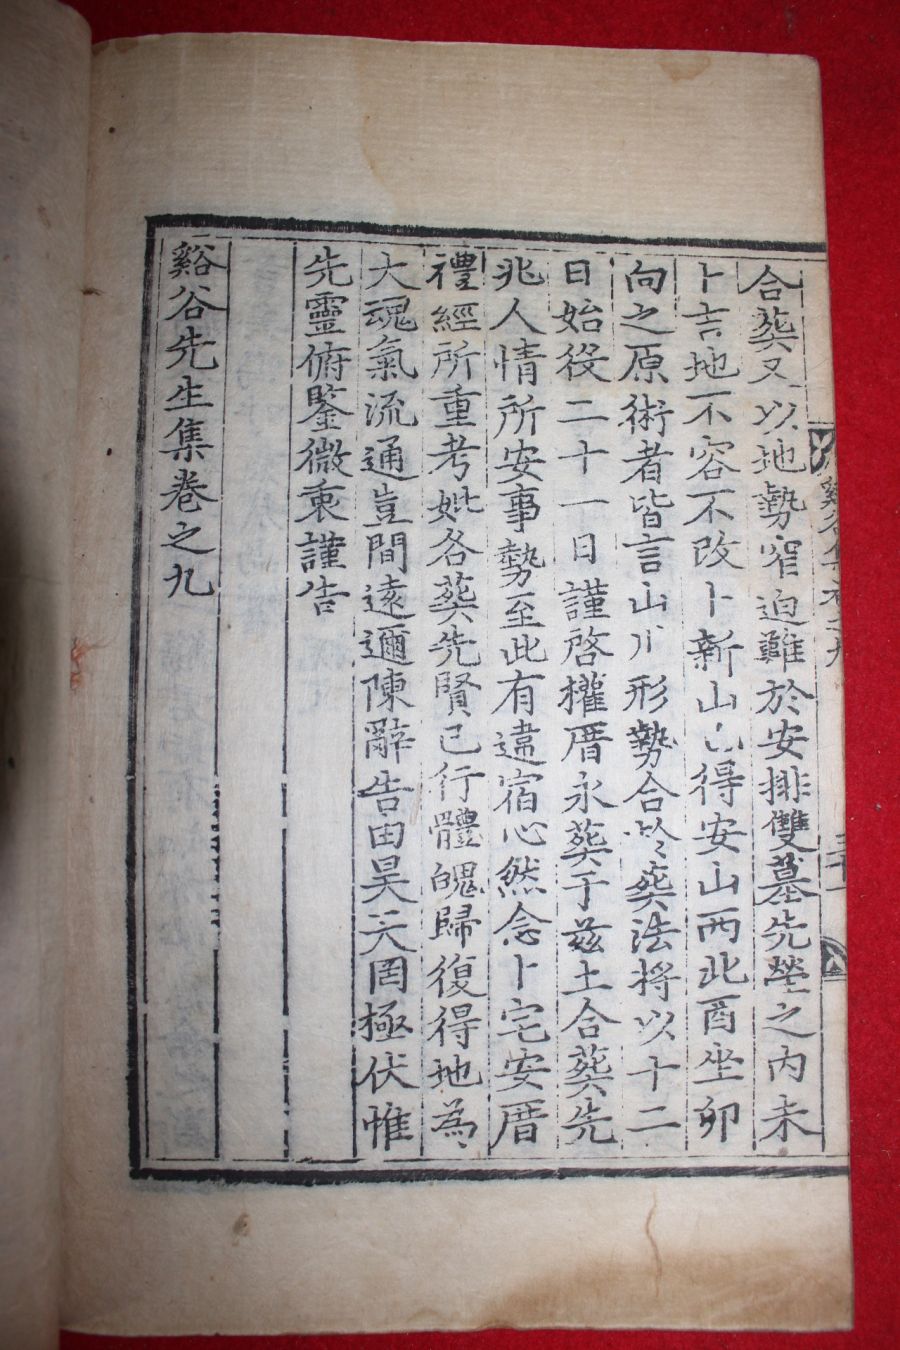 合葬又以地勢窄迫難於安排雙墓先塋之内未
卜吉地不容不改卜新山已得安山西北酉坐卯
向之原術者皆言山川形勢合於葬法將以十二
日始役二十一日謹啓權厝永葬于兹土合葬先
兆人情所安事勢至此有違宿心然念卜宅安厝
禮經所重考妣各葬先賢已行體魄歸復得地為
大魂氣流通豈間遠邇陳辭告由昊天罔極伏惟
先靈俯鑒微衷謹告
谿谷先生集卷之九